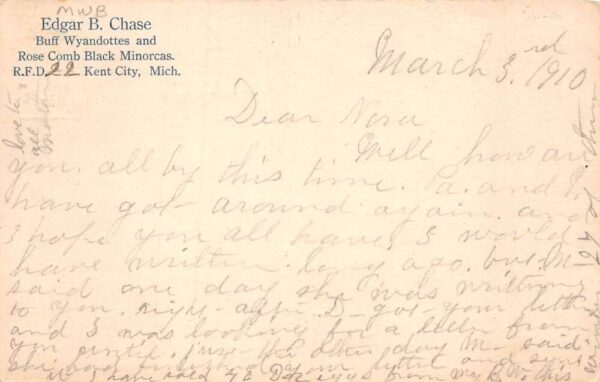 MWB
Edgar B. Chase
Buff Wyandottes and
Rose Comb Black Minorcas.
R.F.D. 22 Kent City, Mich.
March 3.rd 1910
Dear Nora
Well how are
you. all by this time. Pa. and I
have got around again. and
I hope you all have. I would
have written long ago. but. M
said one day she was writing
to you. right after I got your letter
and I was looking for a letter from
you until just the other day M. said
she had your letter and
I have from my B.W. this
love to
all